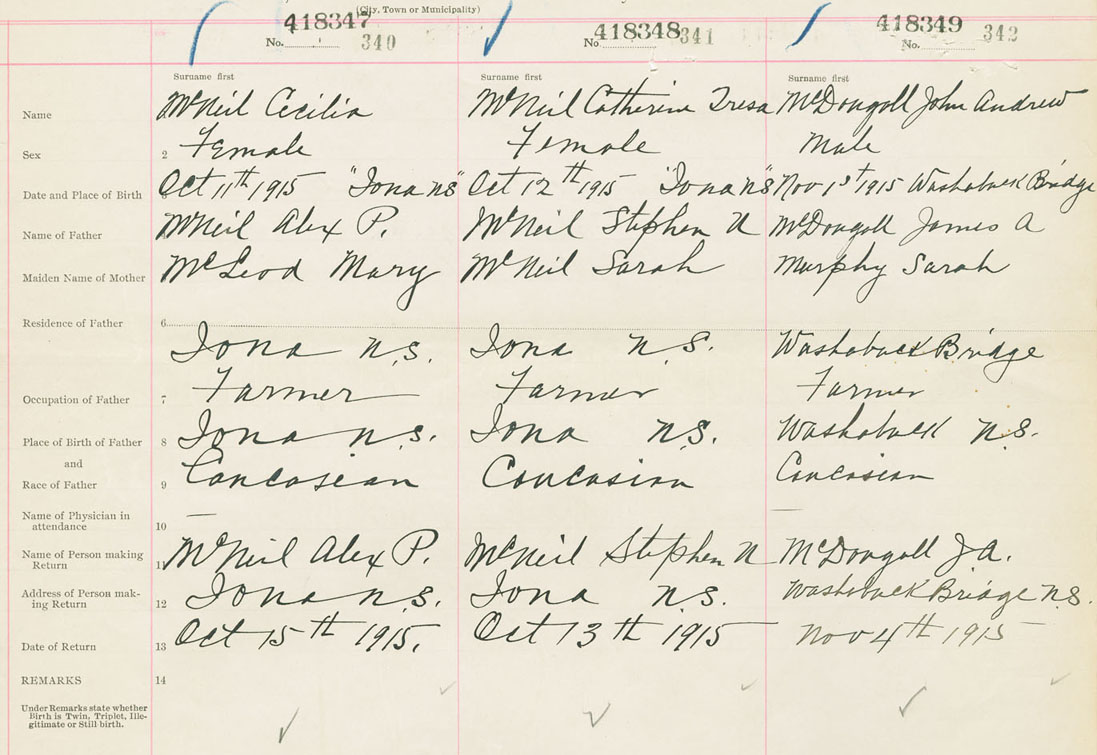 (City, Town or Municipality)
418347 418348 418349
No. 340 No. 341 No. 342
Surname first Surname first Surname first
Name McNeil Cecilia McNeil Catherine Tresa McDougall John Andrew
Sex 2 Female Female Male
Date and Place of Birth 3 Oct 11th 1915 "Iona ns" Oct 12th 1915 "Iona ns" Nov 1st 1915 Washaback Bridge
Name of Father McNeil Alex P. McNeil Stephen N McDougall James A
Maiden Name of Mother McLeod Mary McNeil Sarah Murphy Sarah
Residence of Father 6
Iona N.S. Iona N.S. Washaback Bridge
Occupation of Father 7 Farmer Farmer Farmer
Place of Birth of Father 8 Iona N.S. Iona N.S. Washaback N.S.
and
Race of Father 9 Caucasian Caucasian Caucasian
Name of Physician in
attendance 10 — —
Name of Person making
Return 11 McNeil Alex P. McNeil Stephen N McDougall J.A.
Address of Person mak-
ing Return 12 Iona N.S. Iona N.S. Washaback Bridge N.S.
Date of Return 13 Oct 15th 1915. Oct 13th 1915 Nov 4th 1915
REMARKS 14
Under Remarks state whether
Birth is Twin, Triplet, Ille-
gitimate or Still-birth.